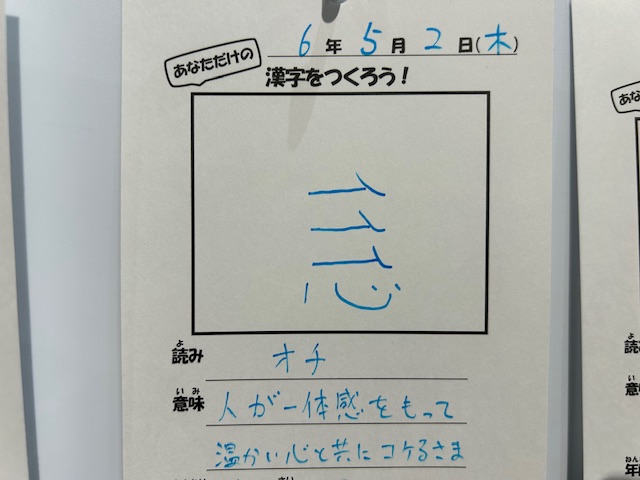 6年5月2日(木)
あなただけの
漢字をつくろう！
読み オチ
意味 人が一体感をもって
温かい心と共にコケるさま